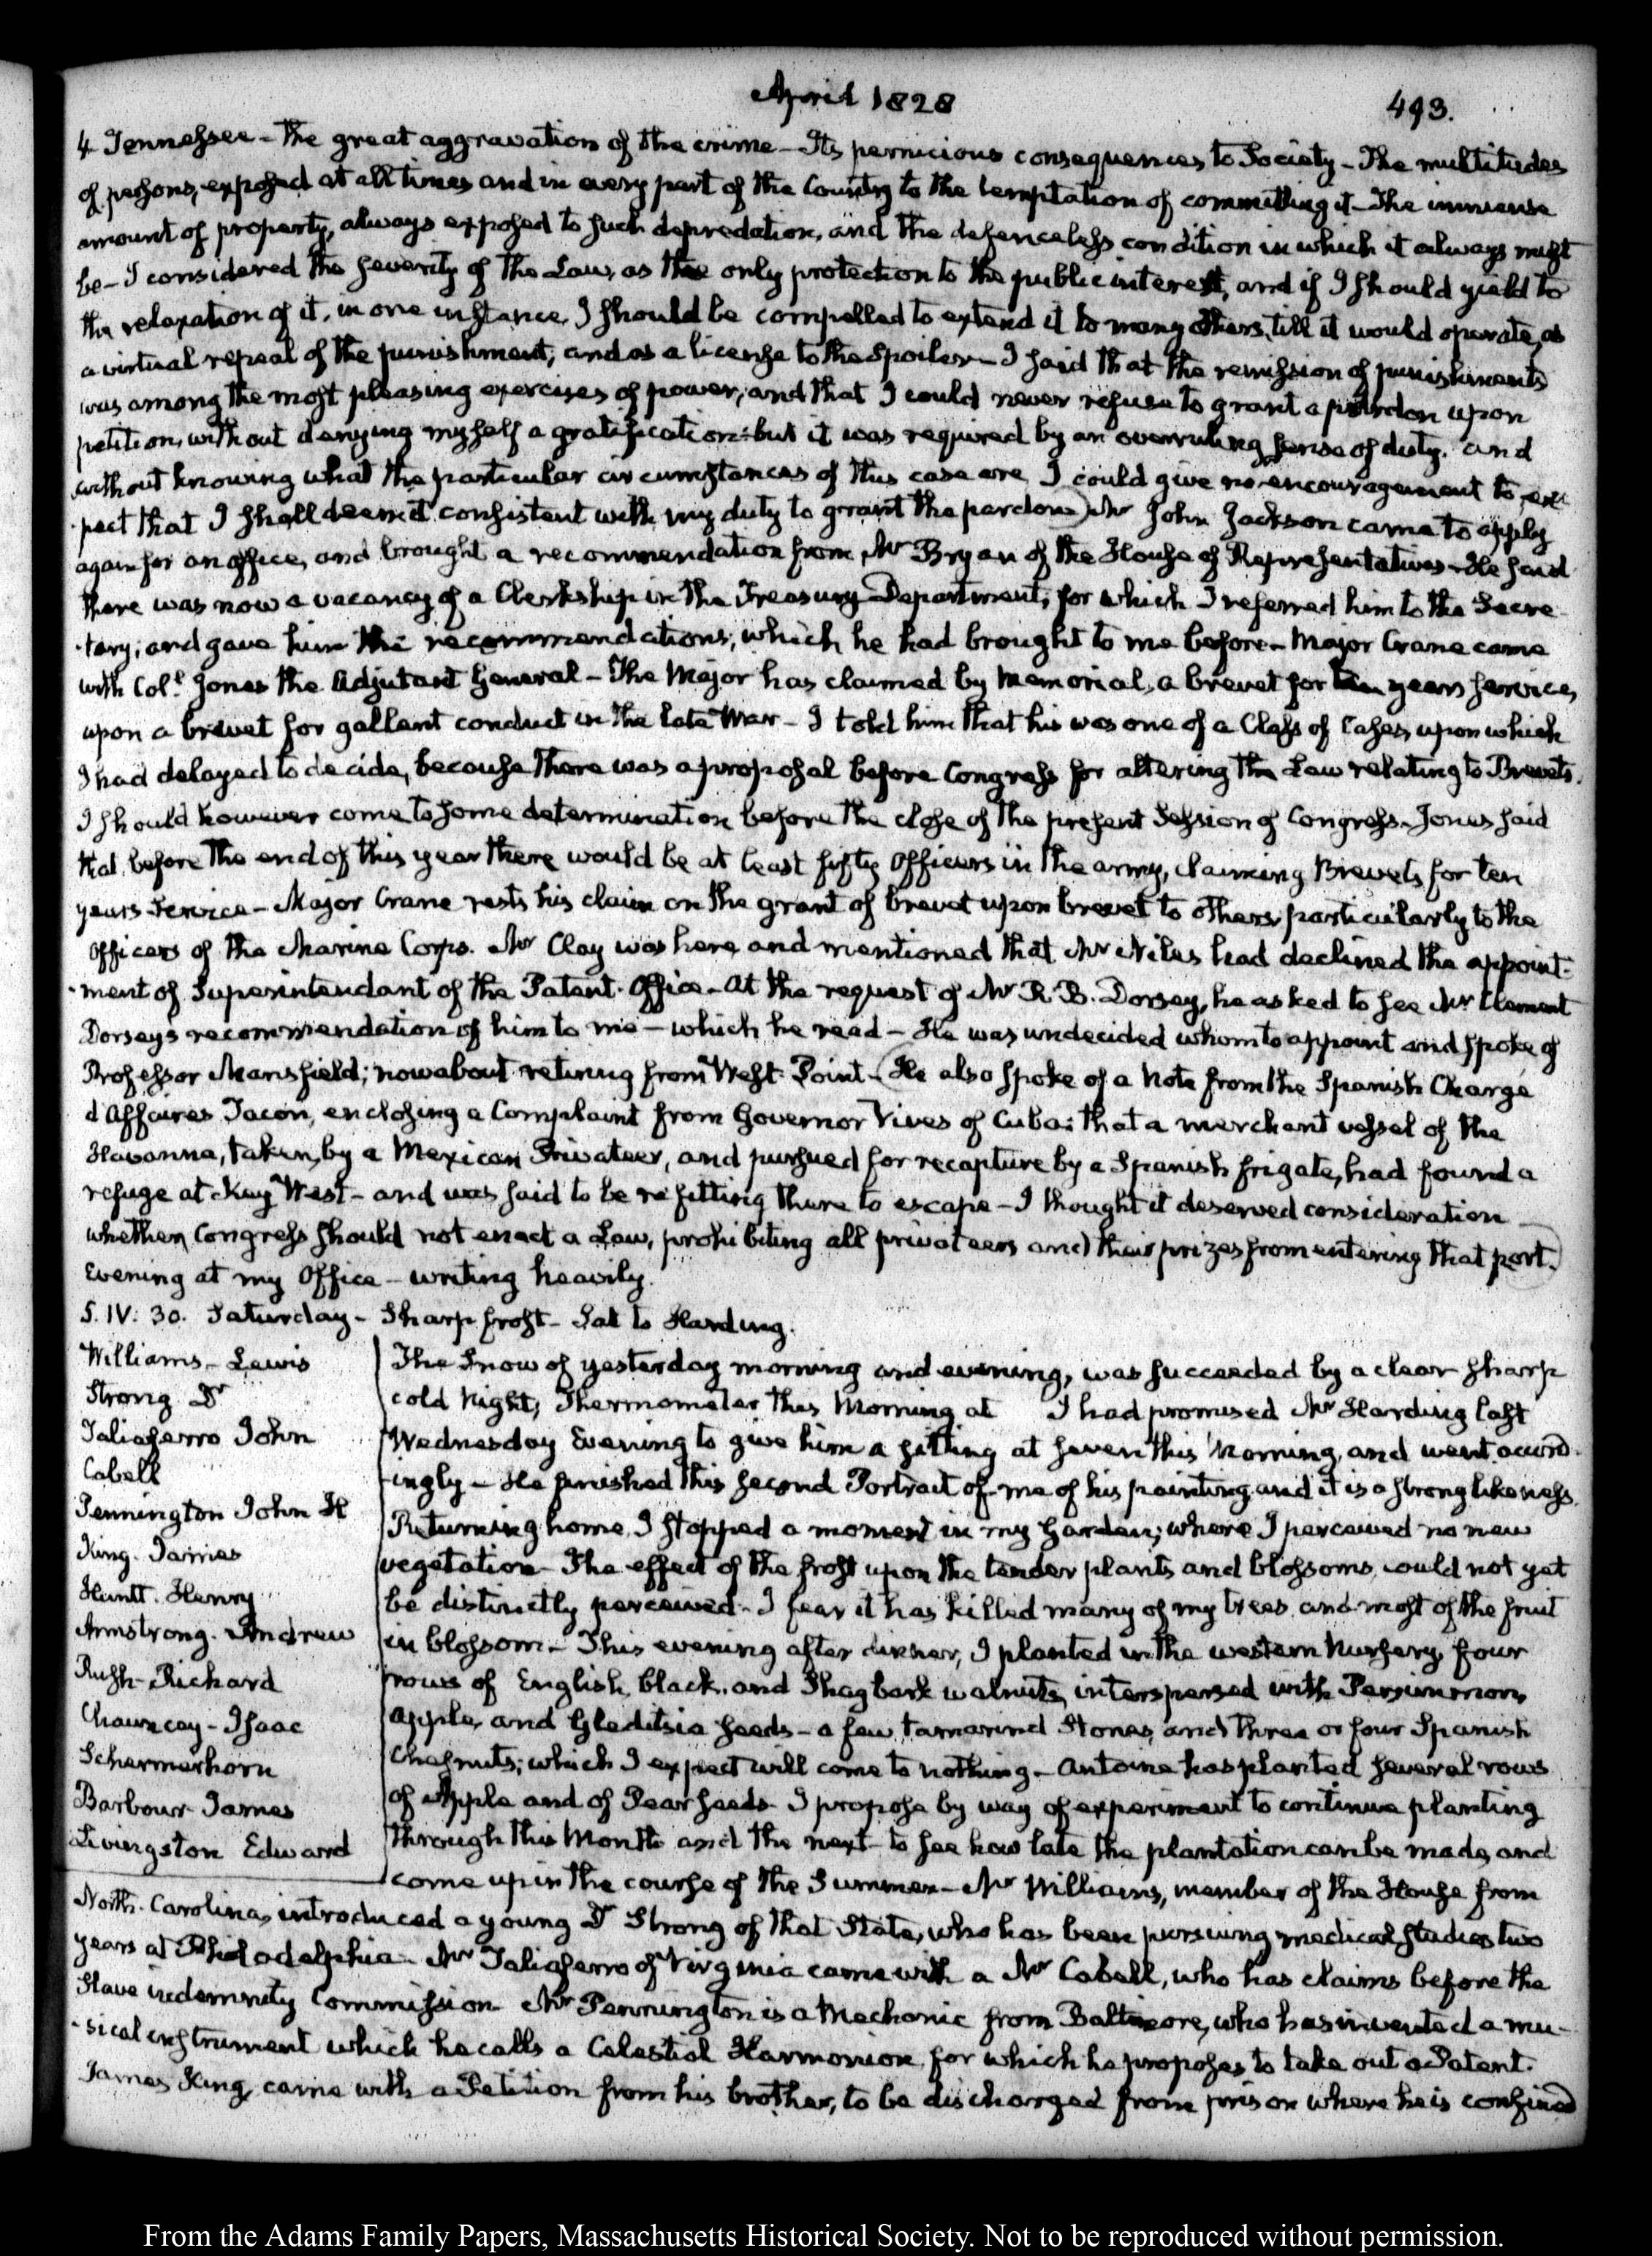 April 1828
493.
4 Tennessee - The great aggravation of the crime - Its pernicious consequences to Society - The multitudes
of persons, exposed at all times and in every part of the Country to the temptation of committing it - The immense
amount of property, always exposed to such depredation, and the defenceless condition in which it always must
be - I considered the severity of the Law, as the only protection to the public interest, and if I should yield to
the relaxation of it, in one instance, I should be compelled to extend it to many others, till it would operate, as
a virtual repeal of the punishment, and as a license to the Spoiler - I said that the remission of punishments
was among the most pleasing exercises of power, and that I could never refuse to grant a pardon upon
petition, without denying myself a gratification: but it was required by an overruling sense of duty. and
without knowing what the particular circumstances of this case are, I could give no encouragement to ex-
-pect that I shall deem it consistent with my duty to grant the pardon) Mr John Jackson came to apply
again for an office, and brought a recommendation from Mr Bryan of the House of Representatives - He said
there was now a vacancy of a Clerkship in the Treasury Department, for which I referred him to the Secre-
-tary; and gave him the recommendations, which he had brought to me before - Major Crane came
with Coll. Jones the Adjutant General - The Major has claimed by Memorial, a brevet for ten years service,
upon a brevet for gallant conduct in the late War - I told him that his was one of a Class of Cases, upon which
I had delayed to decide, because there was a proposal before Congress for altering the Law relating to Brevets.
I should however come to some determination before the close of the present Session of Congress. Jones said
that before the end of this year there would be at least fifty Officers in the army, claiming Brevets for ten
years service - Major Crane rests his claim on the grant of brevet upon brevet to others, particularly to the
Officers of the Marine Corps. Mr Clay was here, and mentioned that Mr Niles had declined the appoint-
-ment of Superintendant of the Patent Office - At the request of Mr R. B. Dorsey, he asked to see Mr Clement
Dorseys recommendation of him to me - which he read - He was undecided whom to appoint and spoke of
Professor Mansfield; now about retiring from West Point - (He also spoke of a Note from the Spanish Chargé
d'Affaires Tacon, enclosing a Complaint from Governor Vives of Cuba: that a merchant vessel of the
Havanna, taken, by a Mexican Privateer, and pursued for recapture by a Spanish frigate, had found a
refuge at Key West - and was said to be refitting there to escape - I thought it deserved consideration
whether Congress should not enact a Law, prohibiting all privateers and their prizes from entering that port.)
Evening at my Office - writing heavily.
5. IV: 30. Saturday - Sharp frost - Sat to Harding.
Williams - Lewis
Strong Dr
Taliaferro John
Cabell
Pennington John H
King. James
Hunt. Henry
Armstrong. Andrew
Rush - Richard
Chauncey - Isaac
Schermerhorn
Barbour James
Livingston Edward
The Snow of yesterday morning and evening, was succeeded by a clear sharp
cold Night, Thermometer this Morning at I had promised Mr Harding last
Wednesday Evening to give him a sitting at seven this Morning, and went accord-
-ingly - He finished this second Portrait of me of his painting, and it is a strong likeness.
Returning home, I stopped a moment in my Garden; where I perceived no new
vegetation - The effect of the frost upon the tender plants and blossoms, could not yet
be distinctly perceived - I fear it has killed many of my trees, and most of the fruit
in blossom - This evening after dinner, I planted in the western Nursery, four
rows of English, black, and Shagbark walnuts, interspersed with Persimmon,
apple, and Gleditsia seeds - a few tamarind Stones, and three or four Spanish
Chesnuts; which I expect will come to nothing - Antoine has planted several rows
of Apple and of Pear seeds - I propose by way of experiment to continue planting
through this Month and the next - to see how late the plantation can be made, and
come up in the course of the Summer - Mr Williams, member of the House from
North-Carolina, introduced a young Dr Strong of that State, who has been pursuing medical studies two
years at Philadelphia. Mr Taliaferro of Virginia came with a Mr Cabell, who has claims before the
Slave indemnity Commission - Mr Pennington is a Mechanic from Baltimore, who has invented a mu-
-sical instrument which he calls a Celestial Harmonion, for which he proposes to take out a Patent.
James King, came with a Petition from his brother, to be discharged from prison where he is confined
From the Adams Family Papers, Massachusetts Historical Society. Not to be reproduced without permission.